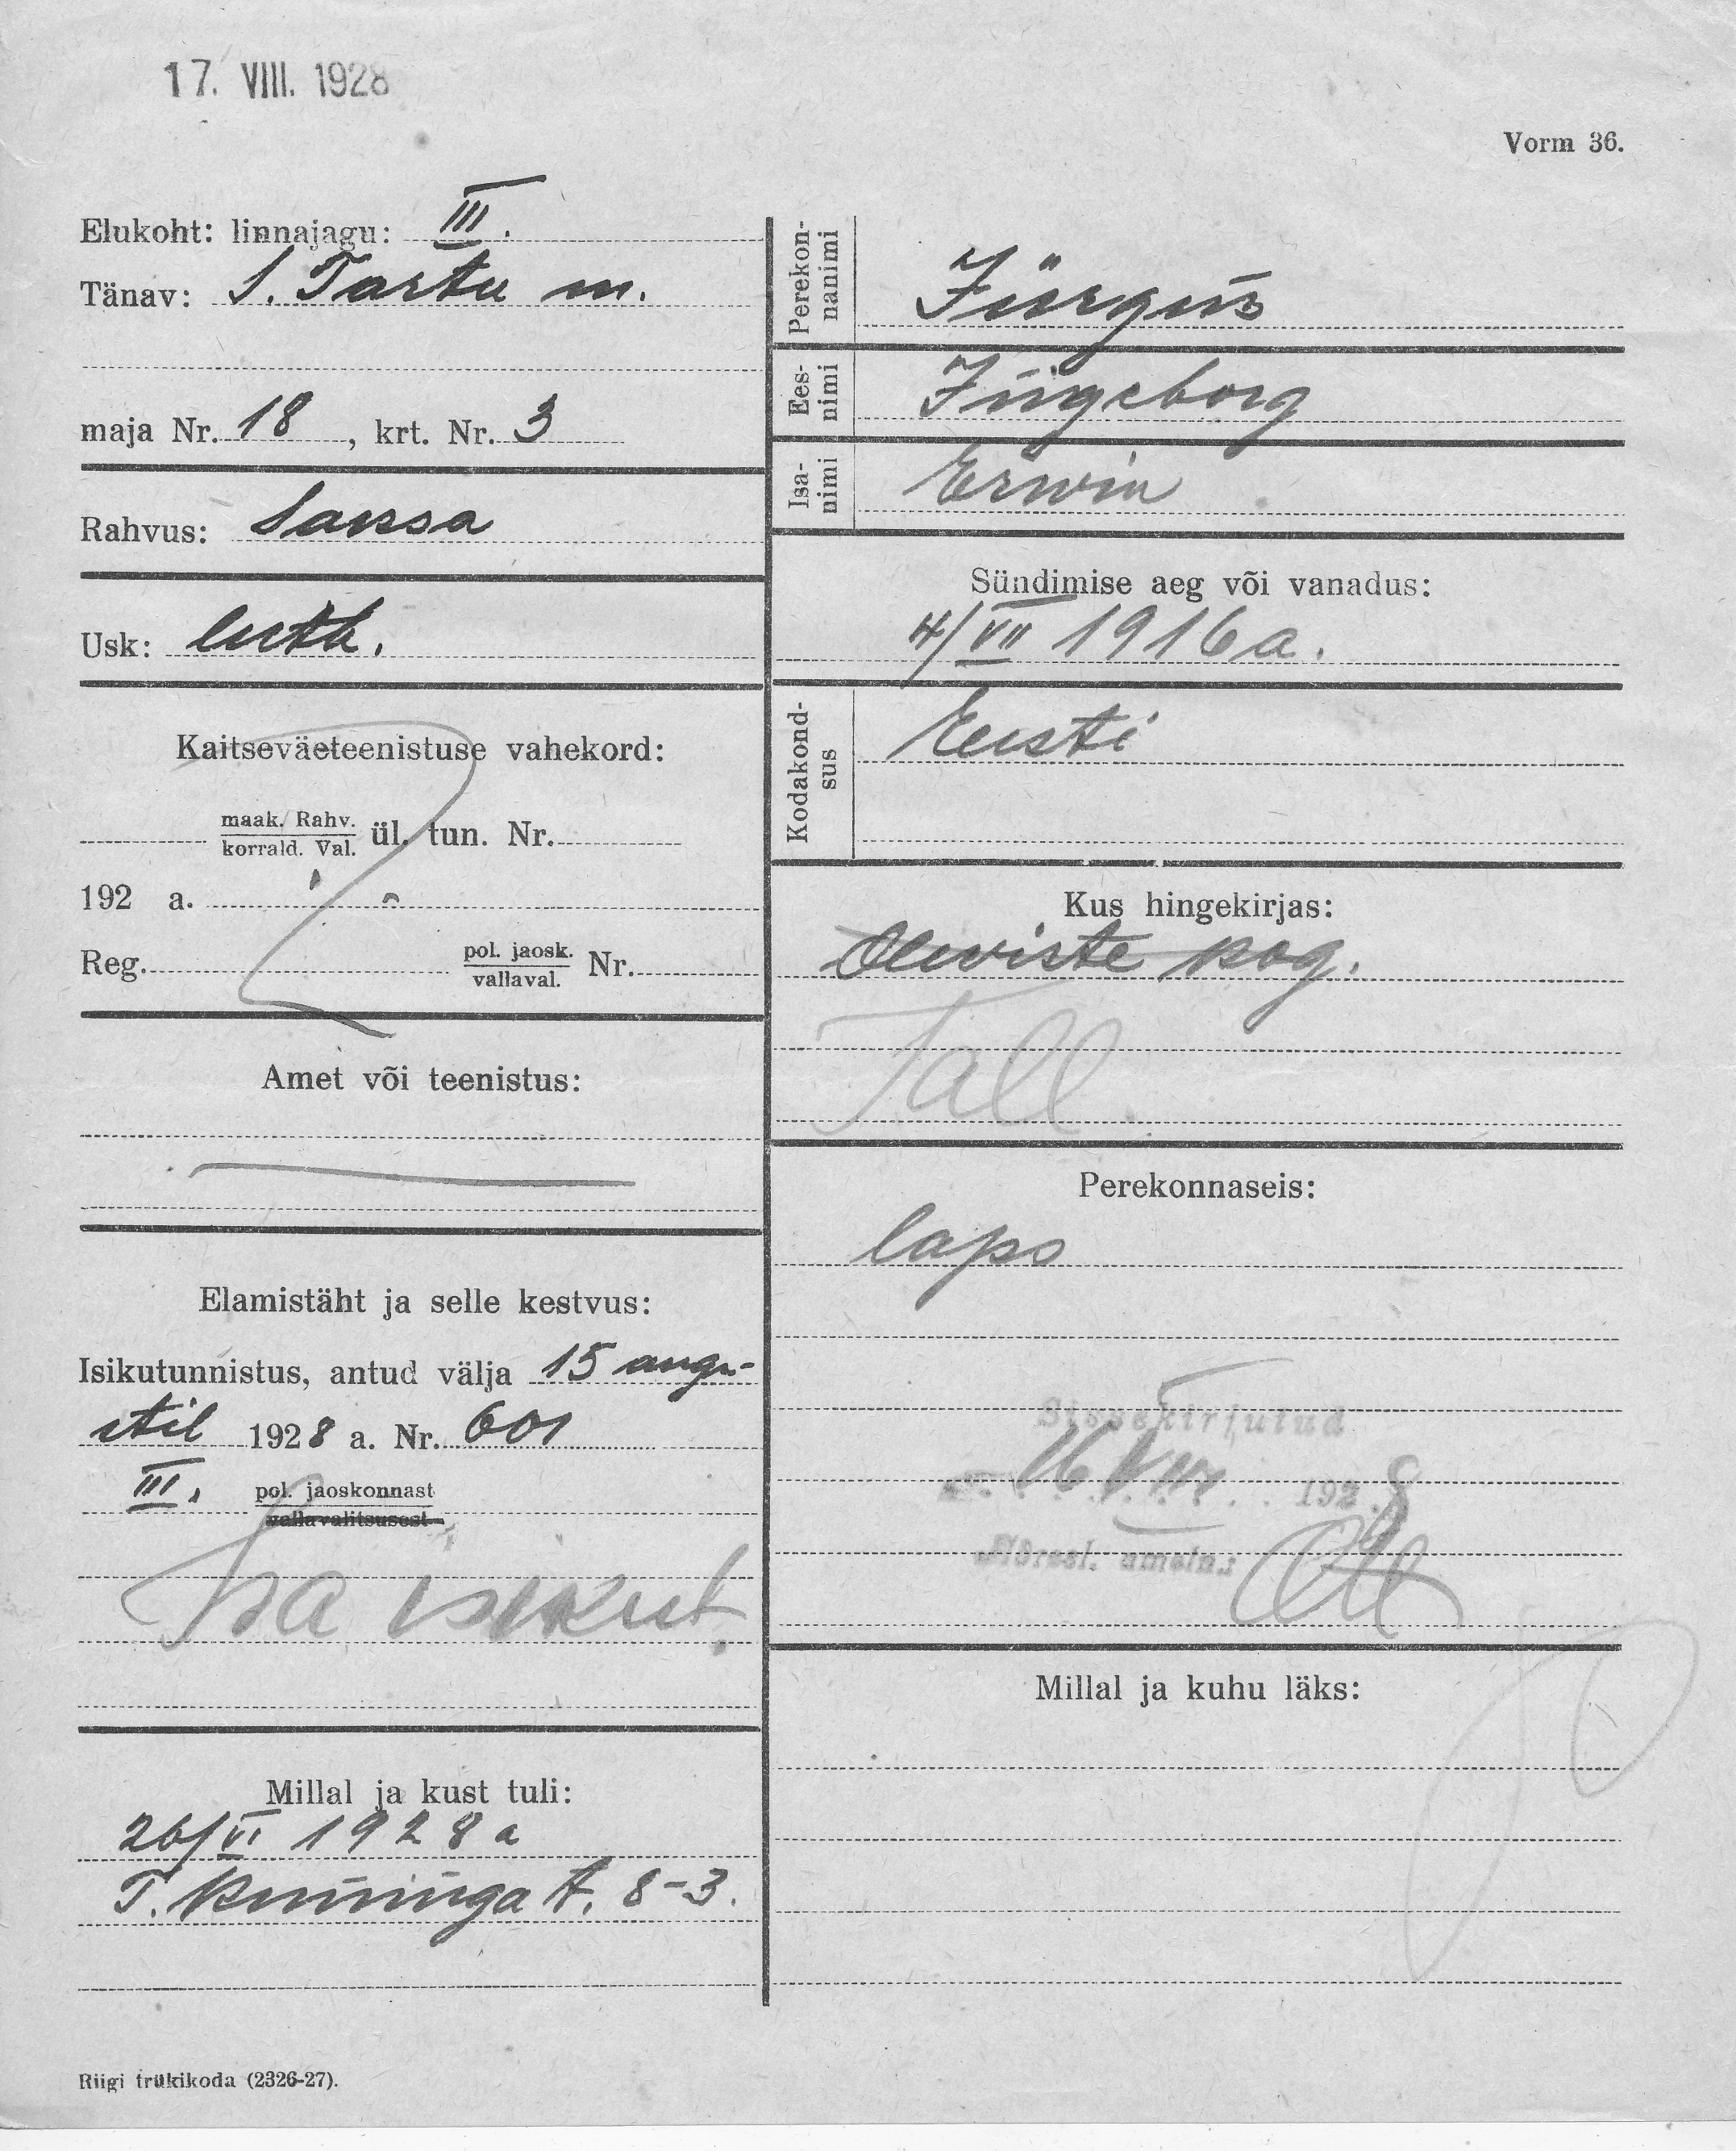 17. VIII. 1928
Vorm 36.
Elukoht: linnajagu: III.
Tänav: S. Tartu m.
maja Nr. 18, krt. Nr. 3
Rahvus: Saksa
Usk: luth.
Kaitseväeteenistuse vahekord:
maak. Rahv.
korrald. Val. ül. tun. Nr.
192 a.
Reg. pol. jaosk.
vallaval. Nr.
Amet või teenistus:
Elamistäht ja selle kestvus:
Isikutunnistus, antud välja 15 augu-
stil 1928 a. Nr. 601
III. pol. jaoskonnast
vallavalitsusest
Isa isikut.
Millal ja kust tuli:
26/VI 1928 a
T. Kuninga t. 8-3.
Perekon-
nanimi
Jürgens
Ees-
nimi
Ingeborg
Isa-
nimi
Erwin
Sündimise aeg või vanadus:
4/VII 1916 a.
Kodakond-
sus
Eesti
Kus hingekirjas:
Olewiste kog.
Tall.
Perekonnaseis:
laps
Sissekirjutud
16 VIII 1928
Millal ja kuhu läks:
Riigi trükikoda (2326-27).